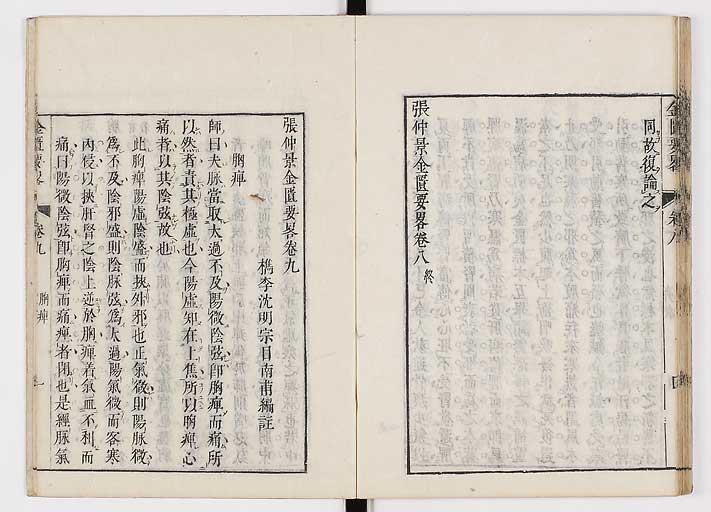 金匱要畧 卷八
同故復論之
張仲景金匱要畧卷八終
張仲景金匱要畧卷九
檇李沈明宗目南甫編註
胸痺
師曰夫脉當取大過不及陽微陰弦卽胸痺而痛所
以然者責其極虛也今陽虛知在上焦所以胸痺心
痛者以其陰弦故也
此胸痺陽虛陰盛而挾外邪也正氣微則陽脉微
爲不及陰邪盛則陰脉弦爲大過陽氣微而客寒
內侵以挾肝腎之陰上逆於胸痺着氣血不利而
痛曰陽微陰弦卽胸痺而痛痺者閉也是經脉氣
金匱要畧 卷九 胸痺 一